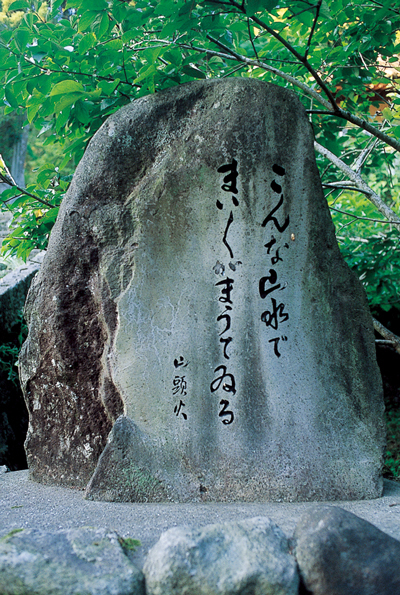 こんな山水で
まいくがまうてゐる
山頭火